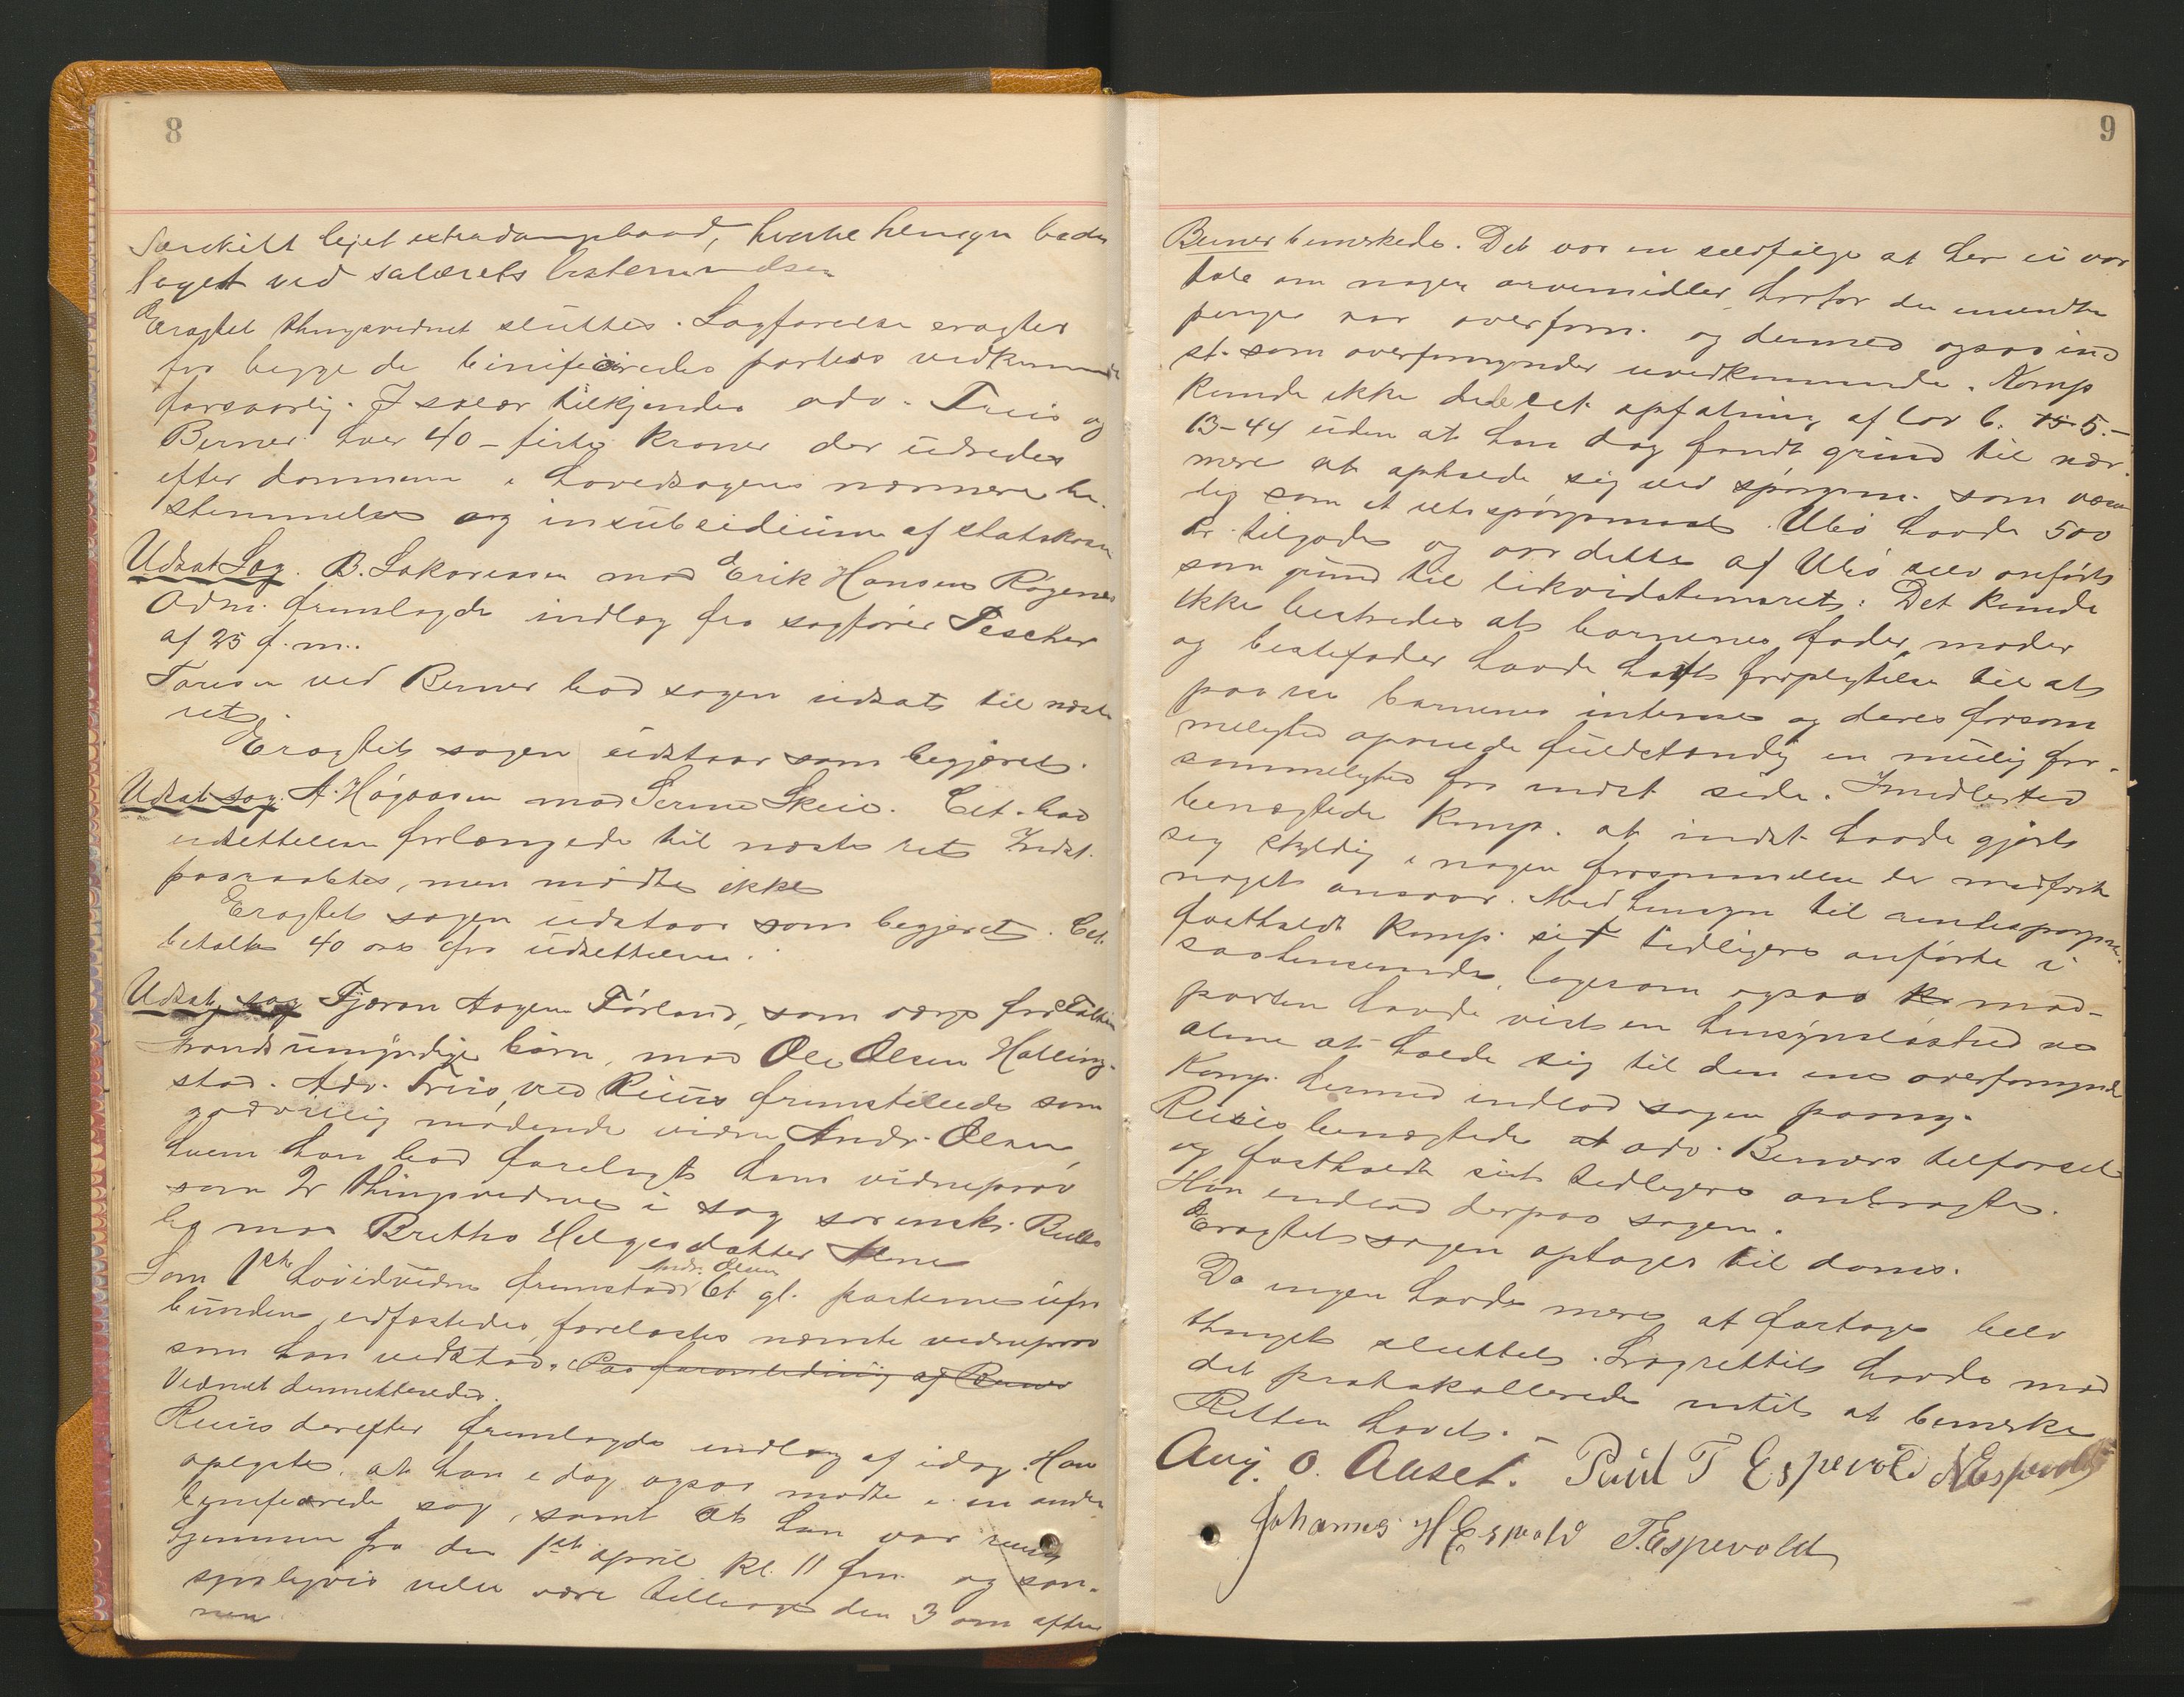 8
Særskilt lejet extradampbaad, hvilke hensyn bedes
taget ved salærets bestemmelse
Eragtet thingsvidnet sluttes. Sagførelse eragtes
for begge de beneficierede parters vedkommende
forsvarlig. I salær tilkjendes adv. Friis og
Berner hver 40 – firti kroner der udredes
efter dommen i hovedsagens nærmere be-
stemmelse og insubsidium af statskassen
Udsat Sag. B. Zakariassen mod Erik Hansen Røgenes
Adm. fremlagde indlæg fra sagfører Tescher
af 25 f.m.
ved Berner bad sagen udsat til næste
ret.
Eragtet sagen udstaar som begjæret.
Udsat sag. A. Høgaasen mod Skeie. Cit. bad
udsettelsen forlænget til næste ret Indst.
paaraabtes, men mødte ikke
Eragtet sagen udstaar som begjæret. Cit.
betalte 40 øre for udsettelsen.
Udsat sag Tjæran Aagen Førland, som værge for
umyndige børn, mod Ole Olsen Halling-
stad. Adv. Friis ved Ruus fremstillede som
godvillig mødende vidne Andr. Olsen,
hvem han bad forelagt hans vidneprov
som 2r thingsvidne i sag sorenskr. Bull
mod Bretha Helgesdatter
Som 1ste hovidvidne fremstod Andr. Olsen 61 gl. parterne ufor
bunden, edfæstedes, forelæstes nævnte vidneprov
som han vedstod. Paa foranledning af Berner
Vidnet demitteredes.
Ruus derefter fremlagde indlæg af idag. Han
oplyste, at han i dag ogsaa mødte i en anden
beneficeret sag, samt at han var reist
hjemmen fra den 1ste april kl. 11 fm. og san-
synligvis vilde være tilbage den 3 om aften
nen
9
Berner bemerkede. Det var en selvfølge at her ei var
tale om nogen arvemidler, hvorfor de nævnte
penge var overform. og dermed ogsaa ind
st. som overformynder uvedkommende. Komp
kunde ikke dele cit. opfatning af lov 6. 5.–
13-44 uden at han dog fandt grund til nær-
mere at opholde sig ved spørgsm. som væsent
lig som et retsspørgsmaal. Ubø havde 500
kr. tilgode og var dette af Ubø selv anført
som grund til likvidatemaret. Det kunde
ikke bestrides at barnenes fader, moder
og bestefader havde havt forpligtelse til at
paase barnenes interesser og deres forsøm
melighed opvejede fuldstændig en mulig for-
sømmelighed fra indst. side. Imidlertid
benægtede komp. at indst. havde gjort
sig skyldig i nogen forsømmelse der medførte
noget ansvar. Med hensyn til
fastholdt komp. sit tidligere anførte i
saahenseende, ligesom ogsaa mod-
parten havde vist en hensynsløshed ved
alene at holde sig til den ene overformynder
Komp. hermed indlod sagen paany.
Ruus benægtede adv. Berners tilførsel
og fastholdt sit tidligere anbragte.
Han indlod derpaa sagen.
Eragtet sagen optages til doms.
Da ingen havde mere at foretage blev
thinget sluttet. Lagrettet havde mod
det protokollerede intet at bemerke
Retten hævet. –
Aug. O. Auset. Paul T Espevold NEspevold
Johannes H Espevold T. Espevold